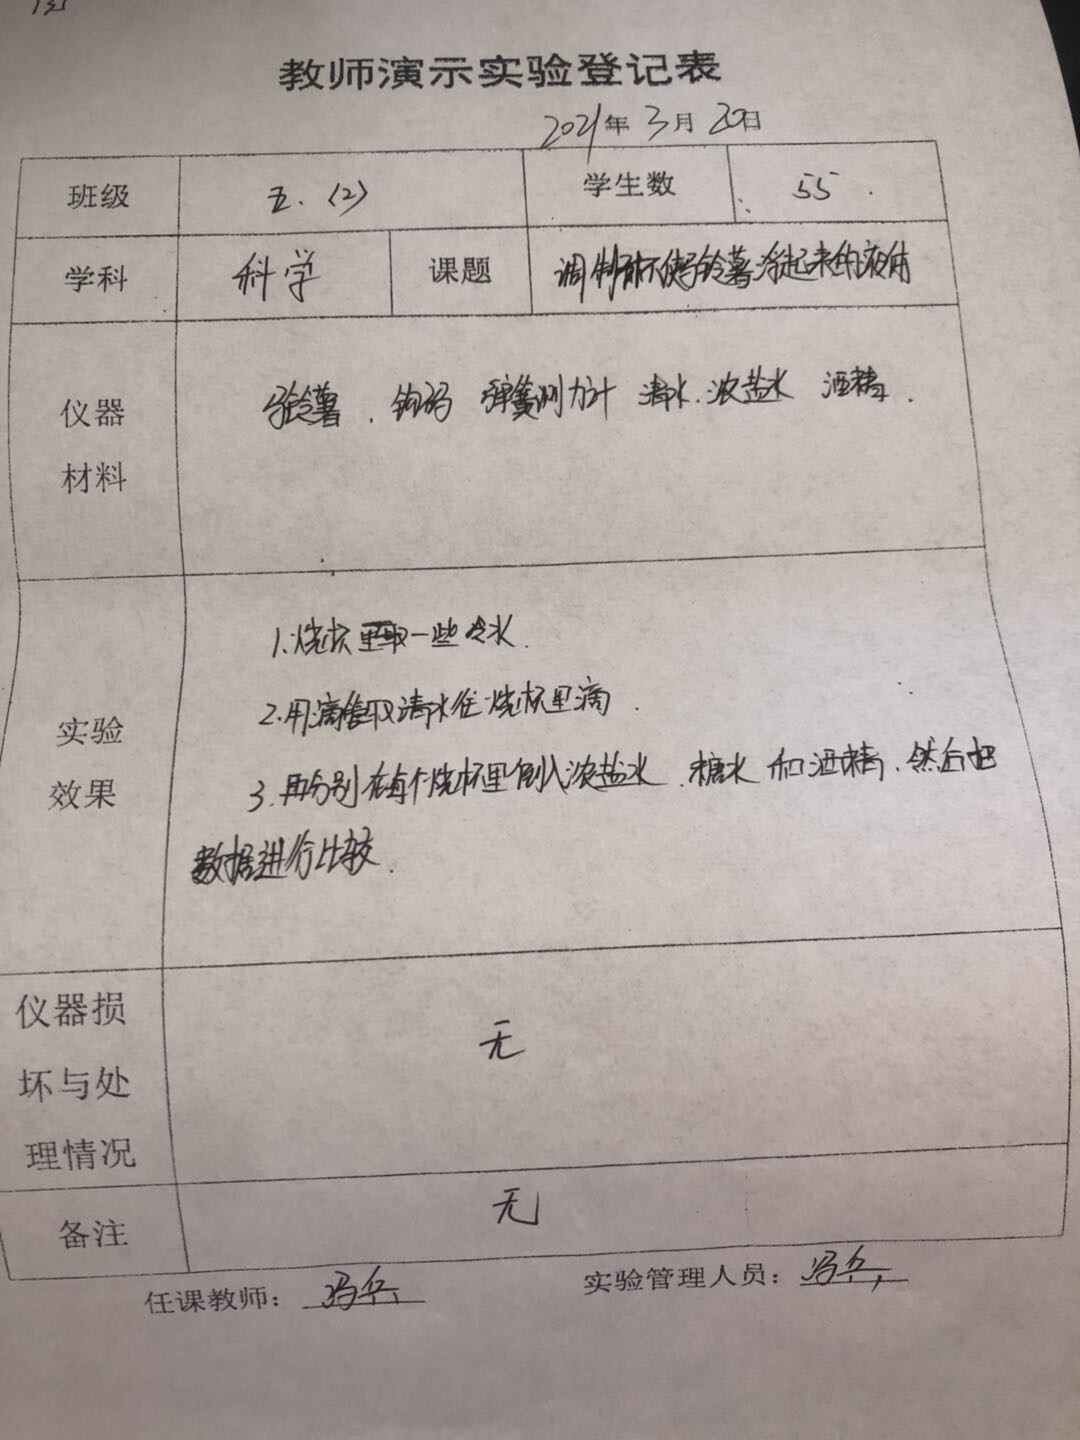 教师演示实验登记表
2021年3月20日
班级 五.(2) 学生数 55
学科 科学 课题 调制能使马铃薯浮起来的液体
仪器材料 马铃薯、钩码 弹簧测力计 清水.浓盐水 酒精.
实验效果
1.烧杯里取一些冷水.
2.用滴管取清水往烧杯里滴
3.再分别在每个烧杯里倒入浓盐水、糖水和酒精.然后把
数据进行比较.
仪器损坏与处理情况 无
备注 无
任课教师:冯兵 实验管理人员:冯兵